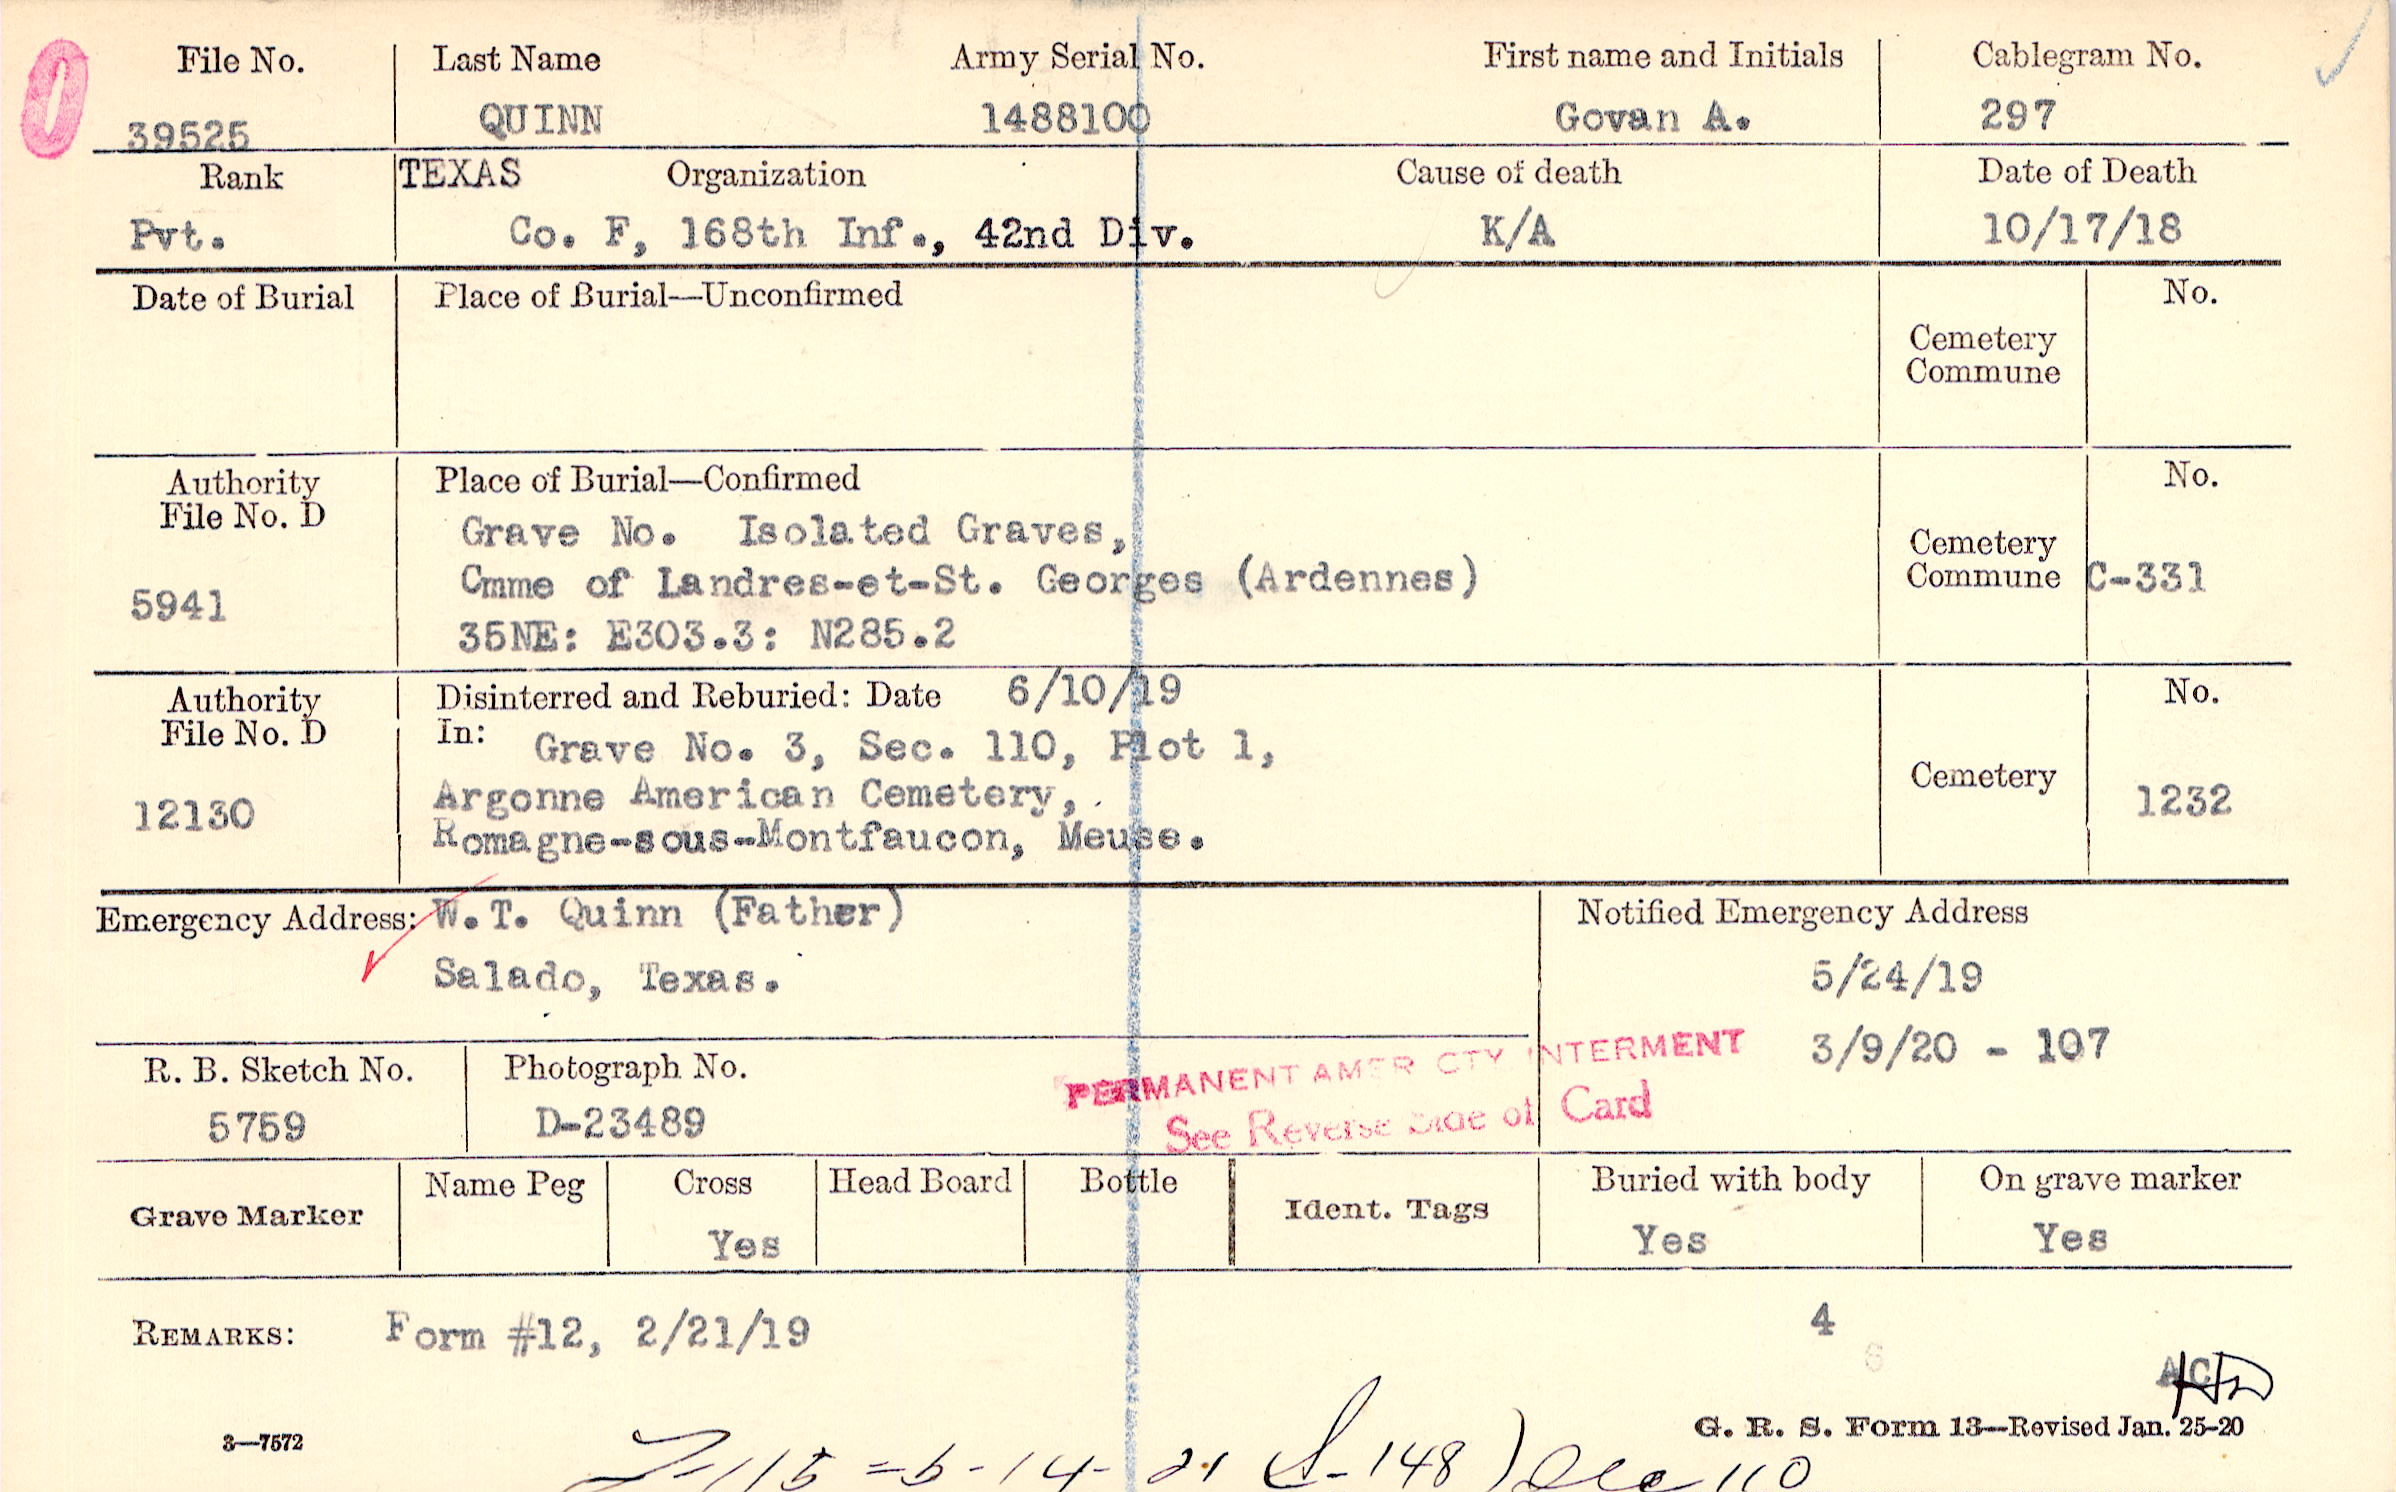 File No. Last Name Army Serial No. First name and Initials Cablegram No.
39525 QUINN 1488100 Govan A. 297
Rank TEXAS Organization Cause of death Date of Death
Pvt. Co. F, 168th Inf., 42nd Div. K/A 10/17/18
Date of Burial Place of Burial—Unconfirmed No.
Cemetery
Commune
Authority Place of Burial—Confirmed No.
File No. D
Grave No. Isolated Graves,
Cemetery
Cmme of Landres-et-St. Georges (Ardennes) Commune C-331
5941
35NE: E303.3: N285.2
Authority Disinterred and Reburied: Date 6/10/19 No.
File No. D In: Grave No. 3, Sec. 110, Plot 1,
Cemetery
12130 Argonne American Cemetery, 1232
Romagne-sous-Montfaucon, Meuse.
Emergency Address: W.T. Quinn (Father) Notified Emergency Address
Salado, Texas. 5/24/19
3/9/20 - 107
R. B. Sketch No. Photograph No.
PERMANENT AMER CTY INTERMENT
5759 D-23489
See Reverse Side of Card
Name Peg Cross Head Board Bottle Buried with body On grave marker
Grave Marker Ident. Tags
Yes Yes Yes
REMARKS: Form #12, 2/21/19 4
6
AC
3—7572 G. R. S. Form 13—Revised Jan. 25-20
(S-148) 110